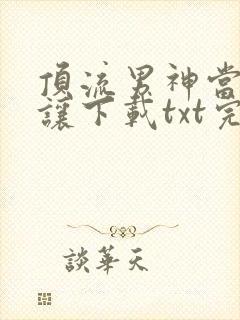 頂流男神當
讓下載txt完
談華天